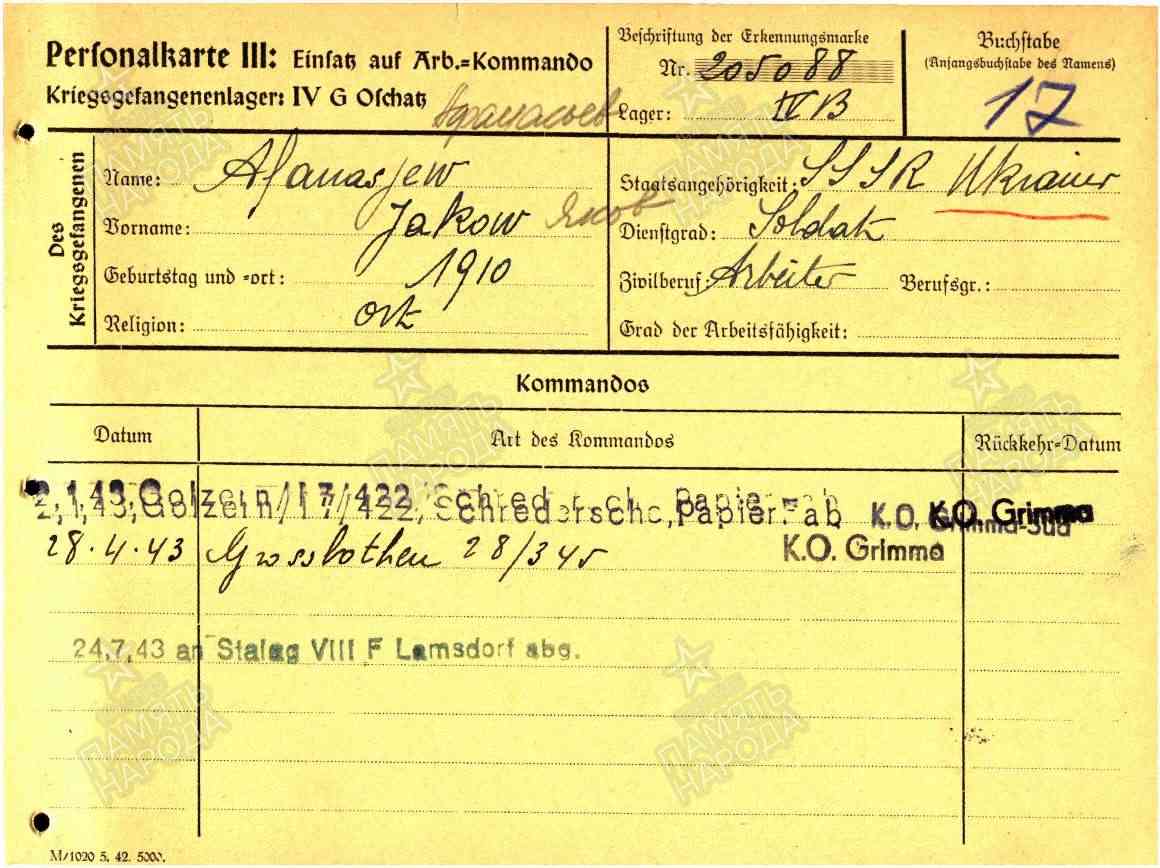 Personalkarte III: Einsatz auf Arb.=Kommando
Kriegsgefangenenlager: IV G Oschatz
Афанасьев
Beschriftung der Erkennungsmarke
Nr. 205088
Lager: IV B
Buchstabe
(Anfangsbuchstabe des Namens)
17
Des Kriegsgefangenen
Name: Afanasjew
Vorname: Jakow Яков
Geburtstag und =ort: 1910
Religion: ort
Staatsangehörigkeit: SSSR Ukrainer
Dienstgrad: Soldat
Zivilberuf: Arbeiter Berufsgr.:
Grad der Arbeitsfähigkeit:
Kommandos
Datum Art des Kommandos Rückkehr=Datum
2,1,43, Golzern/17/422, Papier-ab K.O. Grimma
K.O. Grimma-Süd
28.4.43 Grossbothen 28/345 K.O. Grimma
24,7,43 an Stalag VIII F Lamsdorf abg.
M/1020 5. 42. 5000.
ПАМЯТЬ НАРОДА
ПАМЯТЬ НАРОДА
ПАМЯТЬ НАРОДА
ПАМЯТЬ НАРОДА
ПАМЯТЬ НАРОДА
ПАМЯТЬ НАРОДА